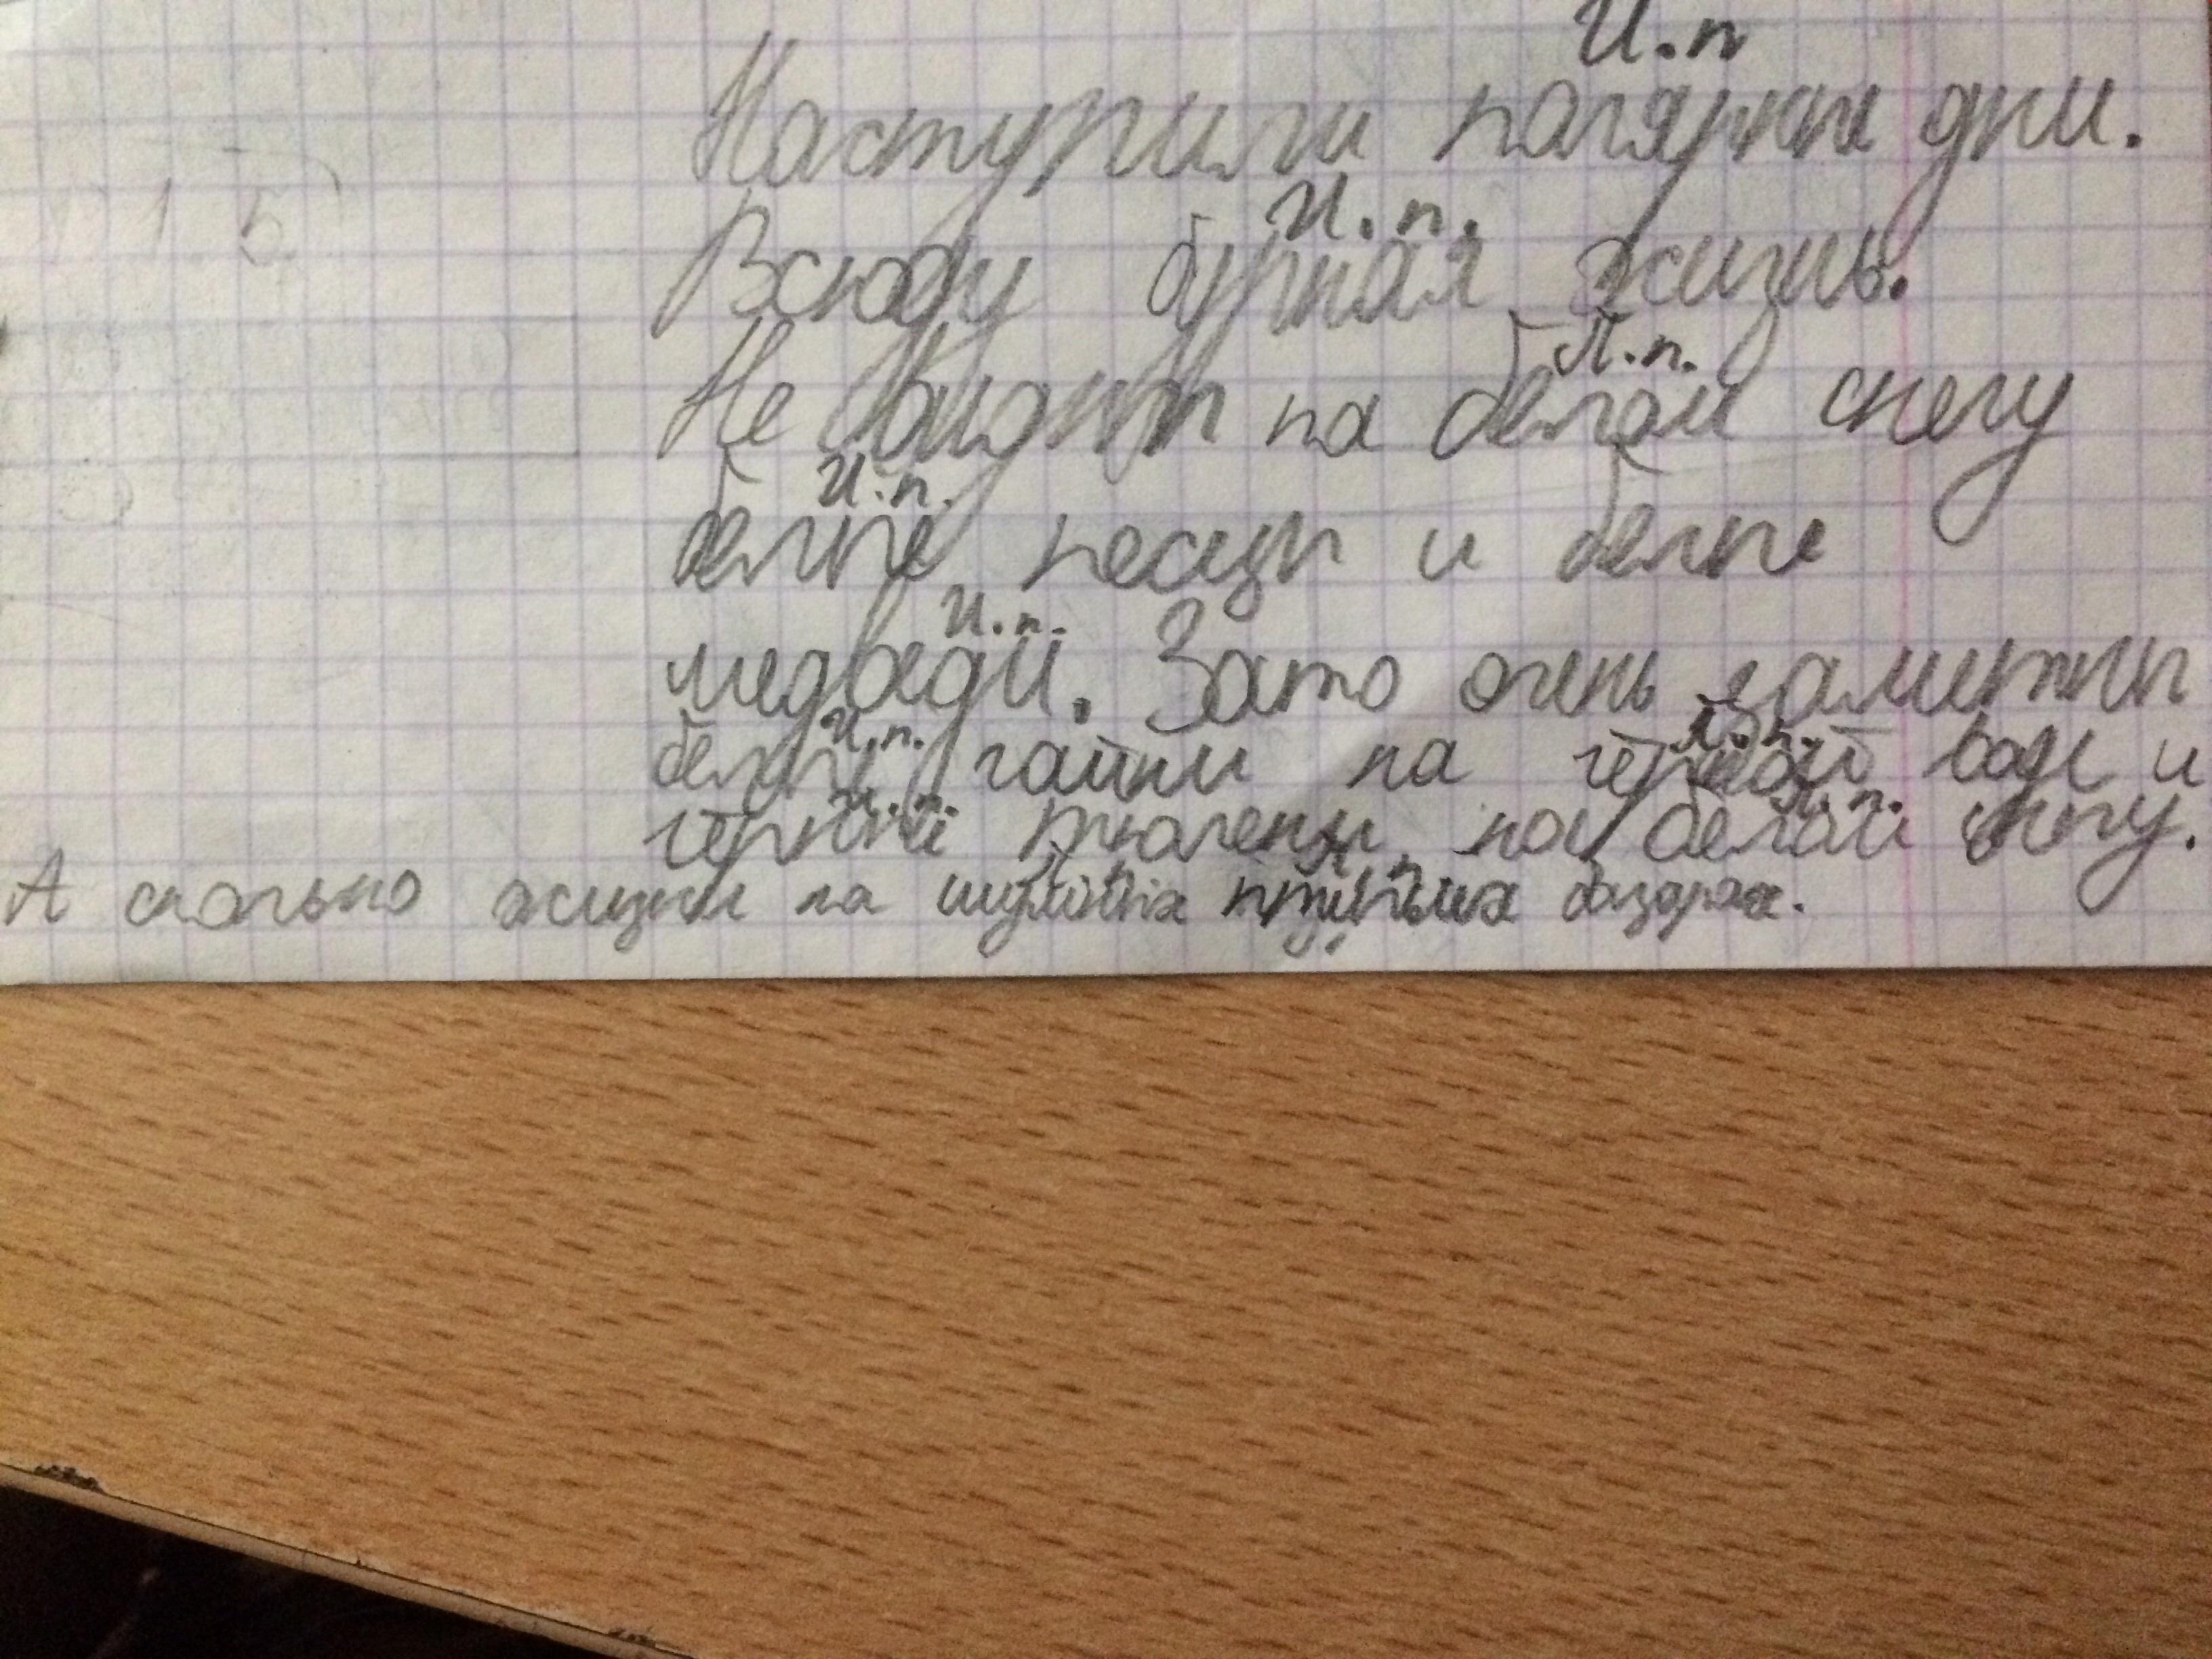 И.п
Наступили полярные дни.
И.п.
Всюду бурная жизнь.
П.п.
Не видны на белом снегу
И.п.
белые песцы и белые
И.п.
медведи. Зато очень заметны
И.п. П.п.
белые чайки на чёрной воде и
И.п. П.п.
чёрные тюлени на белом снегу.
А сколько жизни на шумных птичьих базарах.